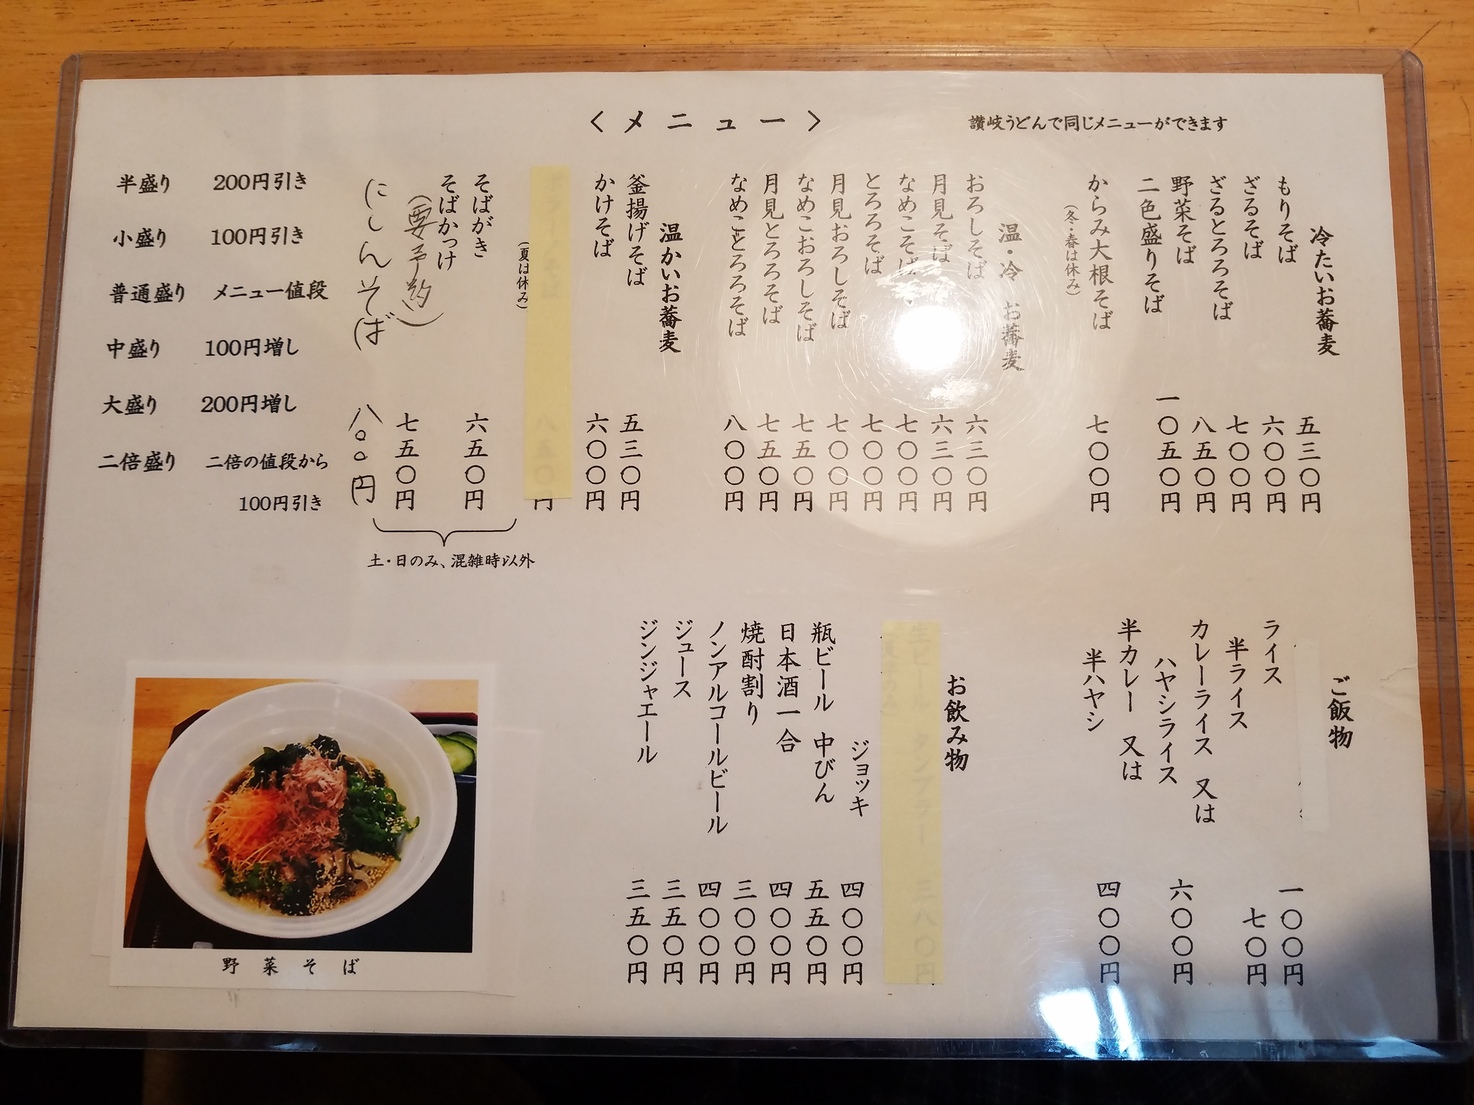 <メニュー>
讃岐うどんで同じメニューができます
冷たいお蕎麦
もりそば 五三〇円
ざるそば 六〇〇円
ざるとろろそば 七〇〇円
野菜そば 八五〇円
二色盛りそば 一〇五〇円
からみ大根そば 七〇〇円
(冬・春は休み)
温・冷 お蕎麦
おろしそば 六三〇円
月見そば 六三〇円
なめこそば 七〇〇円
とろろそば 七〇〇円
月見おろしそば 七〇〇円
なめこおろしそば 七五〇円
月見とろろそば 七五〇円
なめことろろそば 八〇〇円
温かいお蕎麦
釜揚げそば 五三〇円
かけそば 六〇〇円
八五〇円
(夏は休み)
そばがき 六五〇円
そばかっけ 七五〇円
(要予約)
にしんそば 八〇〇円
土・日のみ、混雑時以外
半盛り 200円引き
小盛り 100円引き
普通盛り メニュー値段
中盛り 100円増し
大盛り 200円増し
二倍盛り 二倍の値段から
100円引き
ご飯物
ライス 一〇〇円
半ライス 七〇円
カレーライス 又は
ハヤシライス 六〇〇円
半カレー 又は
半ハヤシ 四〇〇円
お飲み物
生ビール タンブラー 三八〇円
ジョッキ 四〇〇円
瓶ビール 中びん 五五〇円
日本酒一合 四〇〇円
焼酎割り 三〇〇円
ノンアルコールビール 四〇〇円
ジュース 三五〇円
ジンジャエール 三五〇円
野菜そば